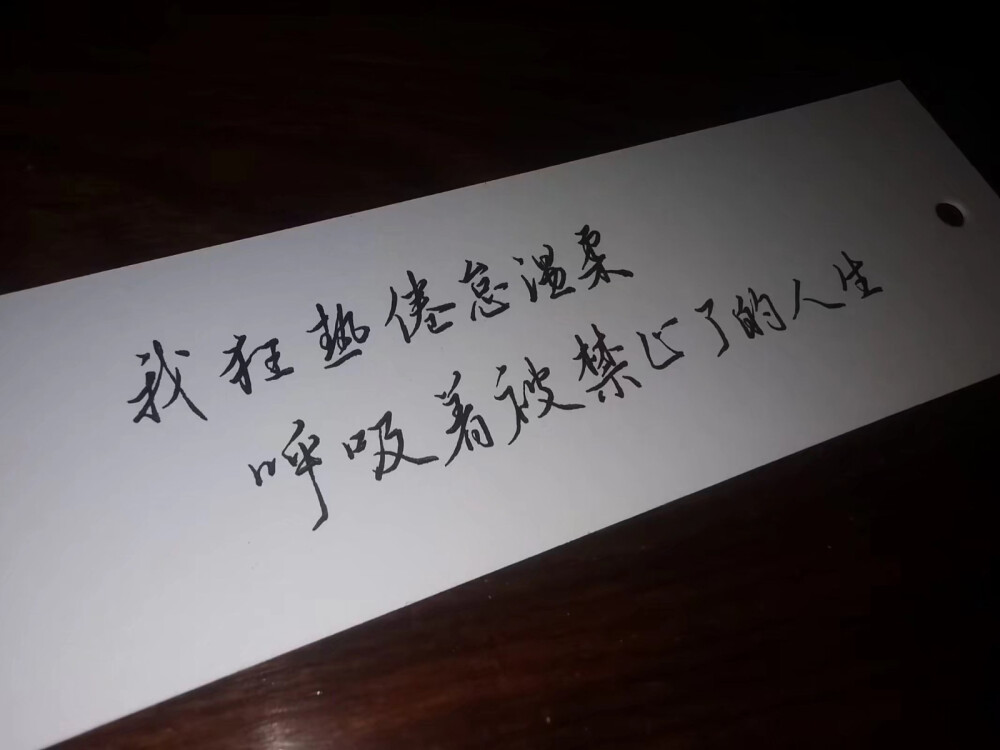 我狂热倦怠温柔
呼吸着被禁止了的人生